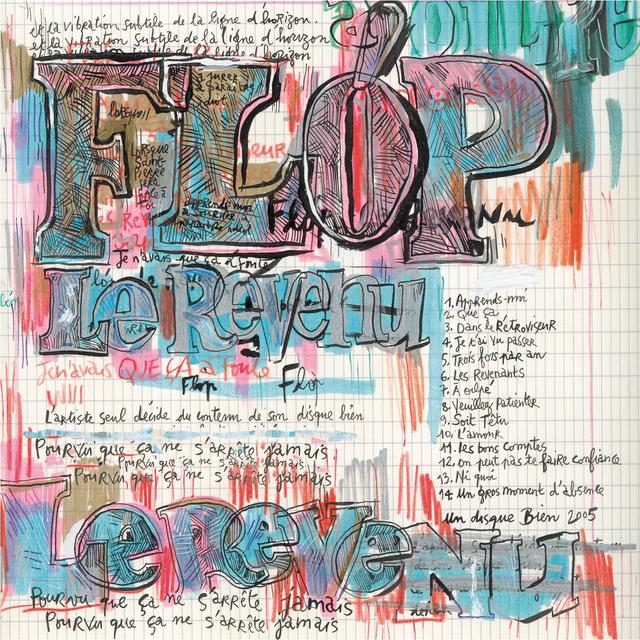 et la vibration subtile de la ligne d'horizon.
et la vibration subtile de la ligne d'horizon
et la vibration subtile de la ligne d'horizon
FLÓP
Lorsque
Saint-
Pierre
apprends-moi
à sourire
Je n'avais que ça à foutre
Le Revenu
Je n'avais QUE ÇA à foutre
Flop Flop
L'artiste seul décide du contenu de son disque bien
Pourvu que ça ne s'arrête jamais
Pourvu que ça ne s'arrête jamais
Pourvu que ça ne s'arrête jamais
1. Apprends-moi
2. Que ça
3. Dans le Rétroviseur
4. Je t'ai vu passer
5. Trois fois par an
6. Les Revenants
7. À oilpé
8. Veuillez patienter
9. Soit Têtu
10. L'amour
11. Les bons comptes
12. On peut pas te faire confiance
13. Ni quoi
14. Un gros moment d'absence
Un disque Bien 2005
Le Revenu
Pourvu que ça ne s'arrête jamais
Pourvu que ça ne s'arrête jamais